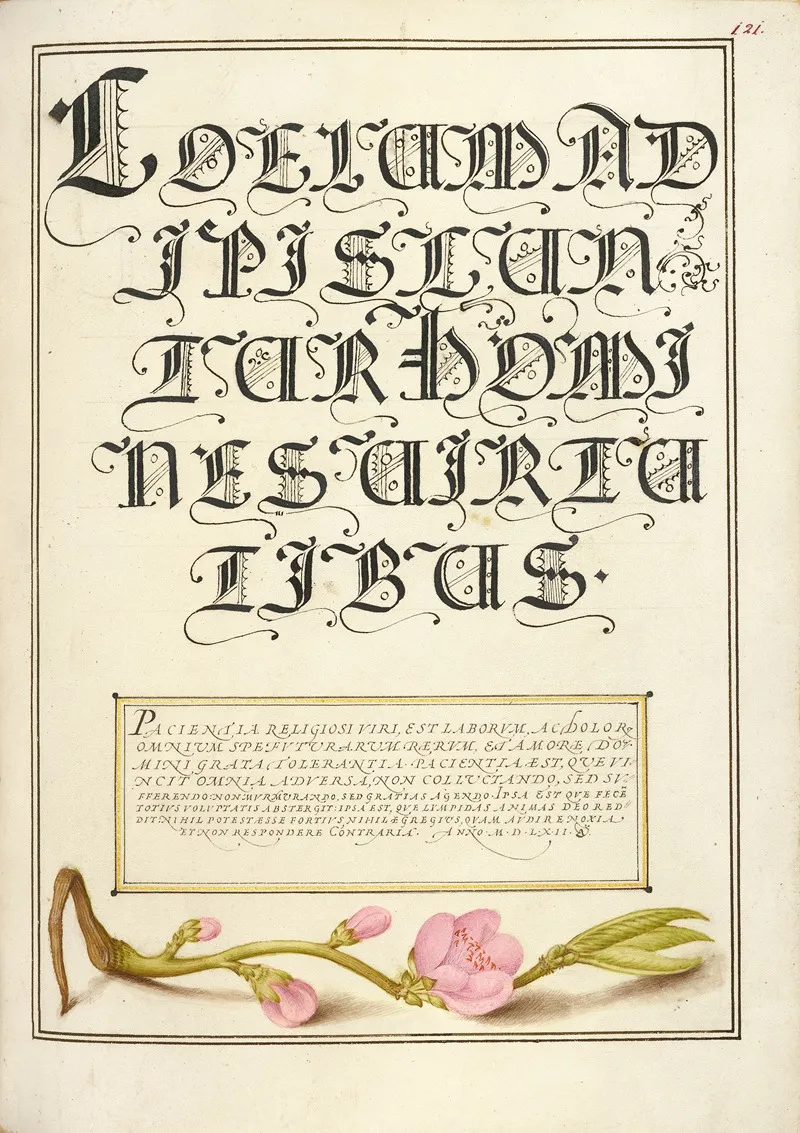 121.
LOELUM AD
IPISLUN
TUR HOMI
NES UIRTU
TIBUS.
PACIENTIA RELIGIOSI VIRI, EST LABORVM, AC DOLOR
OMNIVM SPE FVTVRARVM RERVM, ET AMORE DO-
MINI GRATA TOLERANTIA. PACIENTIA EST, QVE VI-
NCIT OMNIA ADVERSA, NON COLLVCTANDO, SED SV-
FFERENDO: NON MVRMVRANDO, SED GRATIAS AGENDO. IPSA EST QVE FECĒ
TOTIVS VOLVPTATIS ABSTERGIT: IPSA EST, QVE LIMPIDAS ANIMAS DEO RED-
DIT: NIHIL POTEST ESSE FORTIVS, NIHIL ÆGREGIVS, QVAM AVDIRE NOXIA,
ET NON RESPONDERE CONTRARIA. ANNO. M. D. LXII.